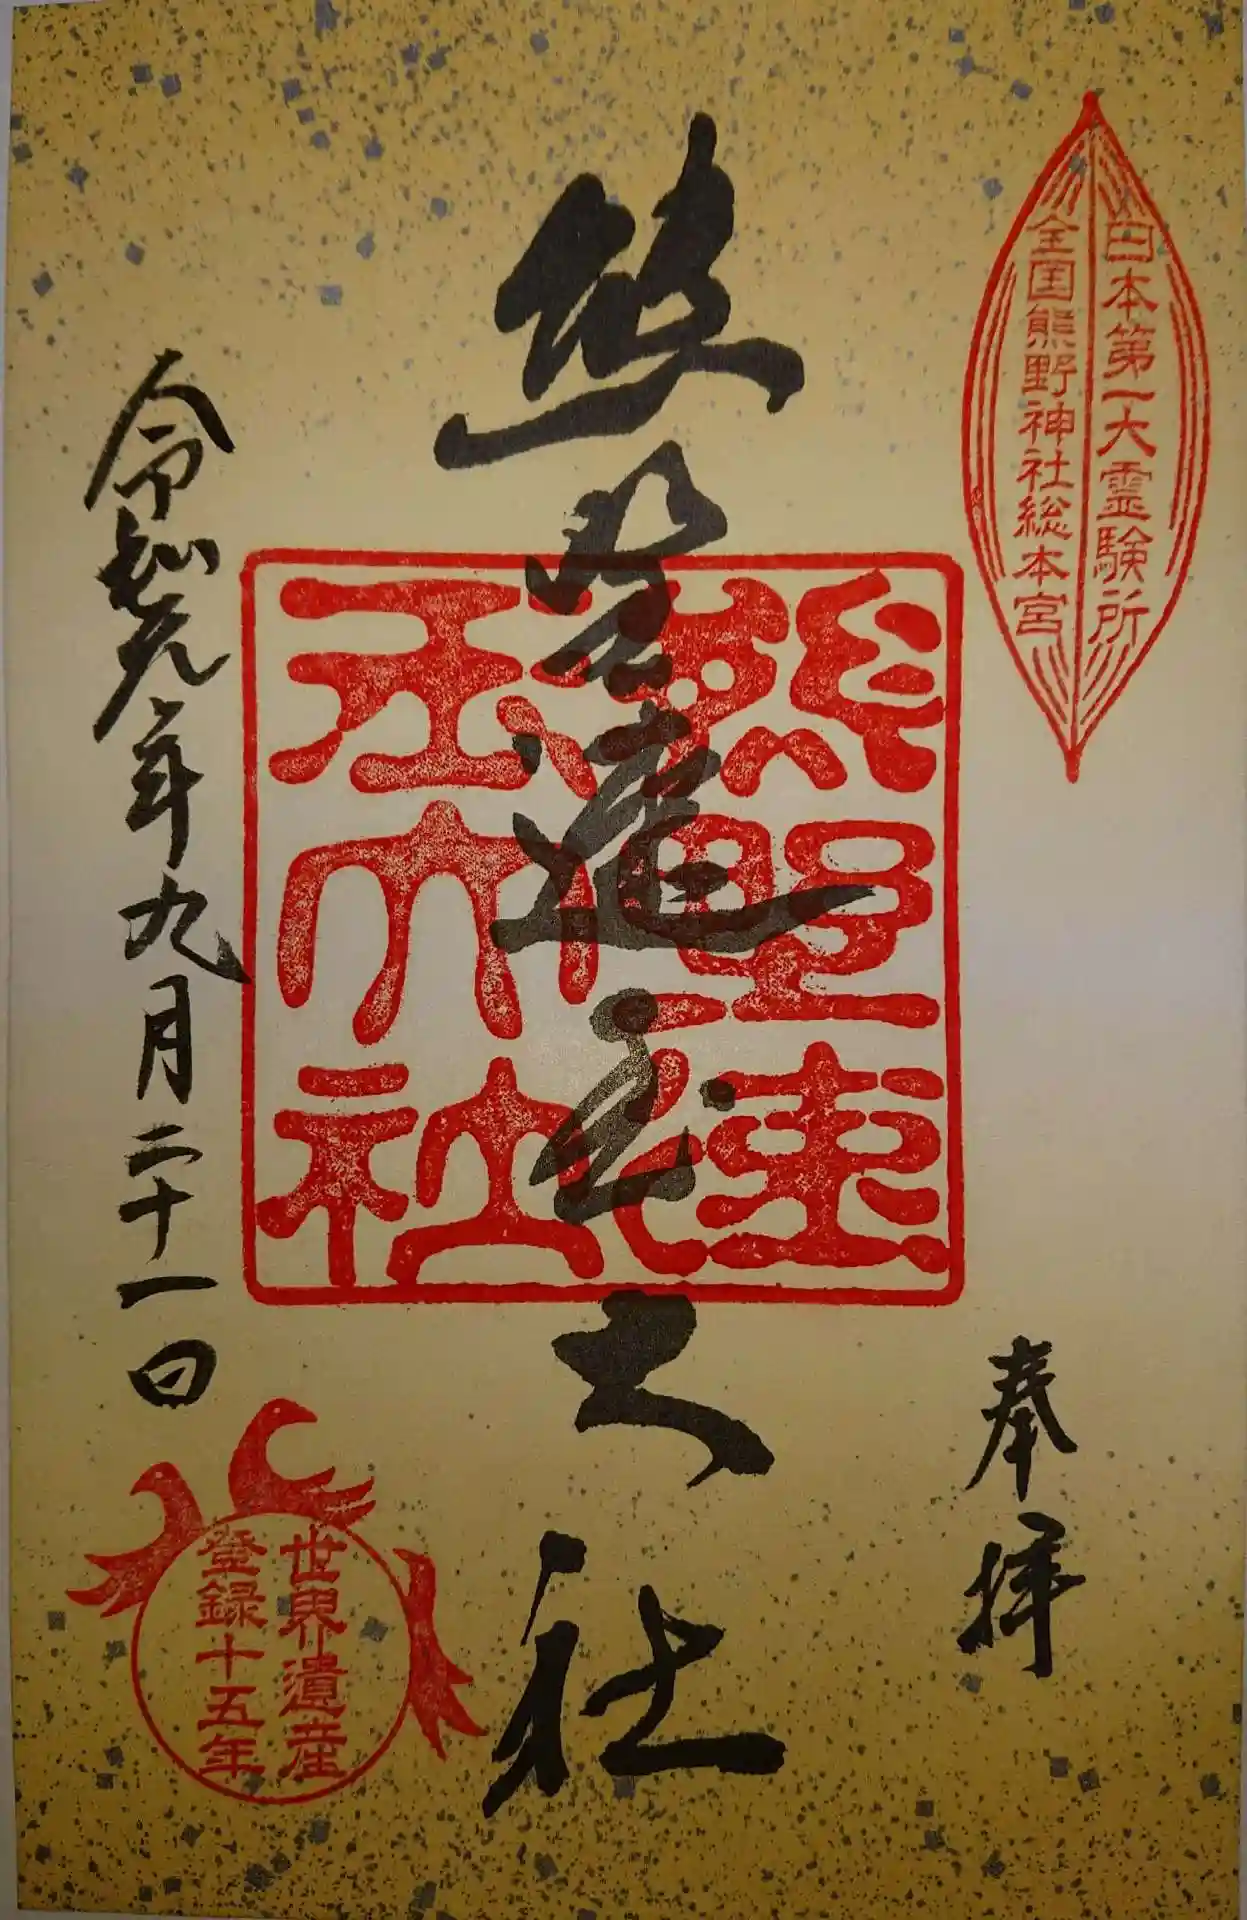 日本第一大霊験所
全国熊野神社総本宮
奉拝
熊野速玉大社
熊野速
玉大社
令和元年九月二十一日
世界遺産
登録十五年